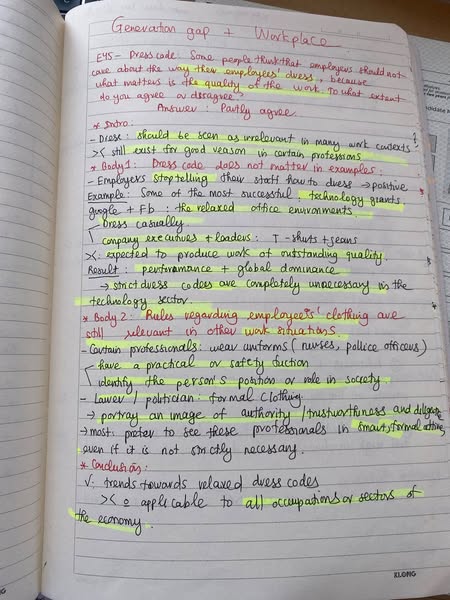 Generation gap + Workplace
EX5 - Dress code: Some people think that employers should not
care about the way their employees' dress, because
what matters is the quality of the work. To what extent
do you agree or disagree?
Answer: Partly agree.
* Intro:
- Dress: should be seen as irrelevant in many work contexts
>< still exist for good reason in certain professions
* Body 1: Dress code does not matter in examples:
- Employers stop telling their staff how to dress → positive
Example: Some of the most successful technology giants
google + Fb: the relaxed office environments
Dress casually
company executives + leaders: T-shirts + jeans
><: expected to produce work of outstanding quality
Result: performance + global dominance
→ strict dress codes are completely unnecessary in the
technology sector.
* Body 2: Rules regarding employees' clothing are
still relevant in other work situations
- Certain professionals: wear uniforms (nurses, police officers)
have a practical or safety function
identify the person's position or role in society.
- Lawer / politician: formal clothing
→ portray an image of authority / trustworthness and
→ most prefer to see these professionals in smart, formal attire,
even if it is not strictly necessary.
* Conclusion:
V: trends towards relaxed dress codes
>< applicable to all occupations or sectors of
the economy.
KLONG